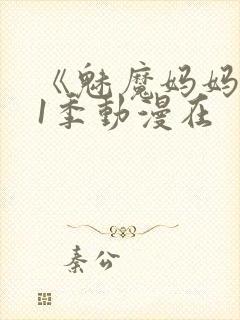 《魅魔妈妈
1季動漫在
秦公